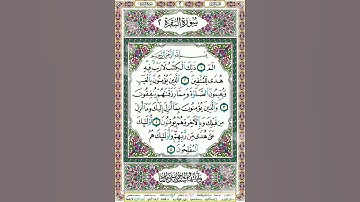 سورة البقرة
بسم الله الرحمن الرحيم
الم ذلك الكتب لا ريب فيه
هدى للمتقين الذين يؤمنون بالغيب
ويقيمون الصلوة ومما رزقنهم ينفقون
والذين يؤمنون بما أنزل إليك وما أنزل
من قبلك وبالآخرة هم يوقنون أولئك
على هدى من ربهم وأولئك هم
المفلحون